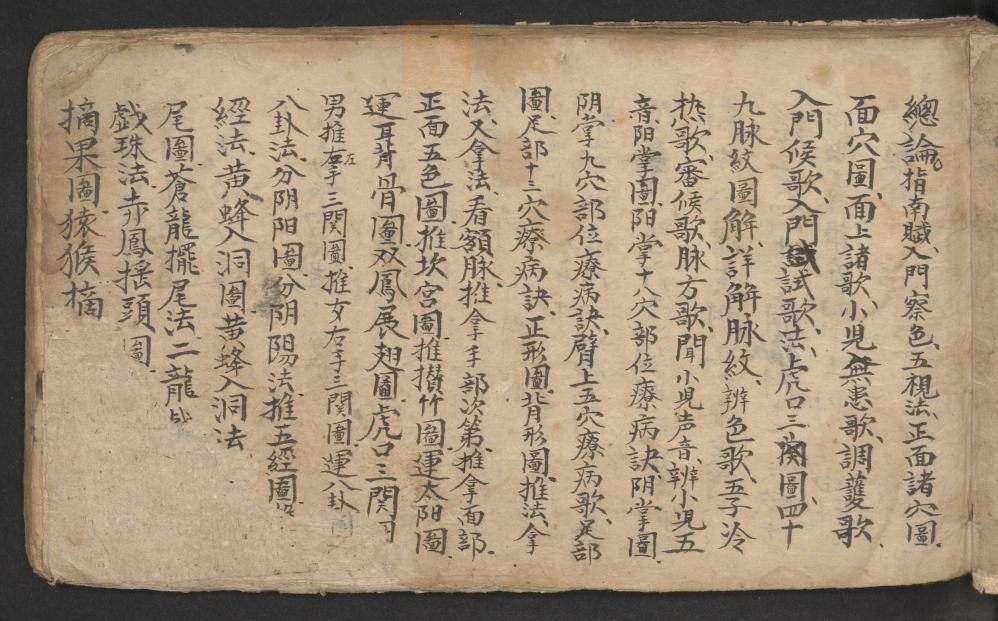 總論、指南賦、入門察色、五視法、正面諸穴圖、
面穴圖、面上諸歌、小児無患歌、調護歌、
入門候歌、入門試歌、法上虎口三関圖、四十
九脉紋圖解、詳解脉紋、辨色歌、五子冷
热歌、審候歌、脉万歌、聞小児声音、辨小児五
音、阳掌圖、阳掌十八穴部位療病訣、阴掌圖、
阴掌九穴部位療病訣、臂上五穴療病歌、足部
圖、足部十三穴療病訣、正形圖、背形圖、推法、拿
法、又拿法、看額脉、推拿手部次第、推拿面部、
正面五色圖、推坎宮圖、推攅竹圖、運太阳圖、
運耳背骨圖、双鳳展翅圖、虎口三関
男推左手三関圖、推女右手三関圖、運八卦圖
八卦法、分阴阳圖、分阴陽法、推五經圖、
經法、黄蜂入洞圖、黄蜂入洞法
尾圖、蒼龍擺尾法、二龍
戲珠法、赤鳳摇頭圖
摘果圖、猿猴摘